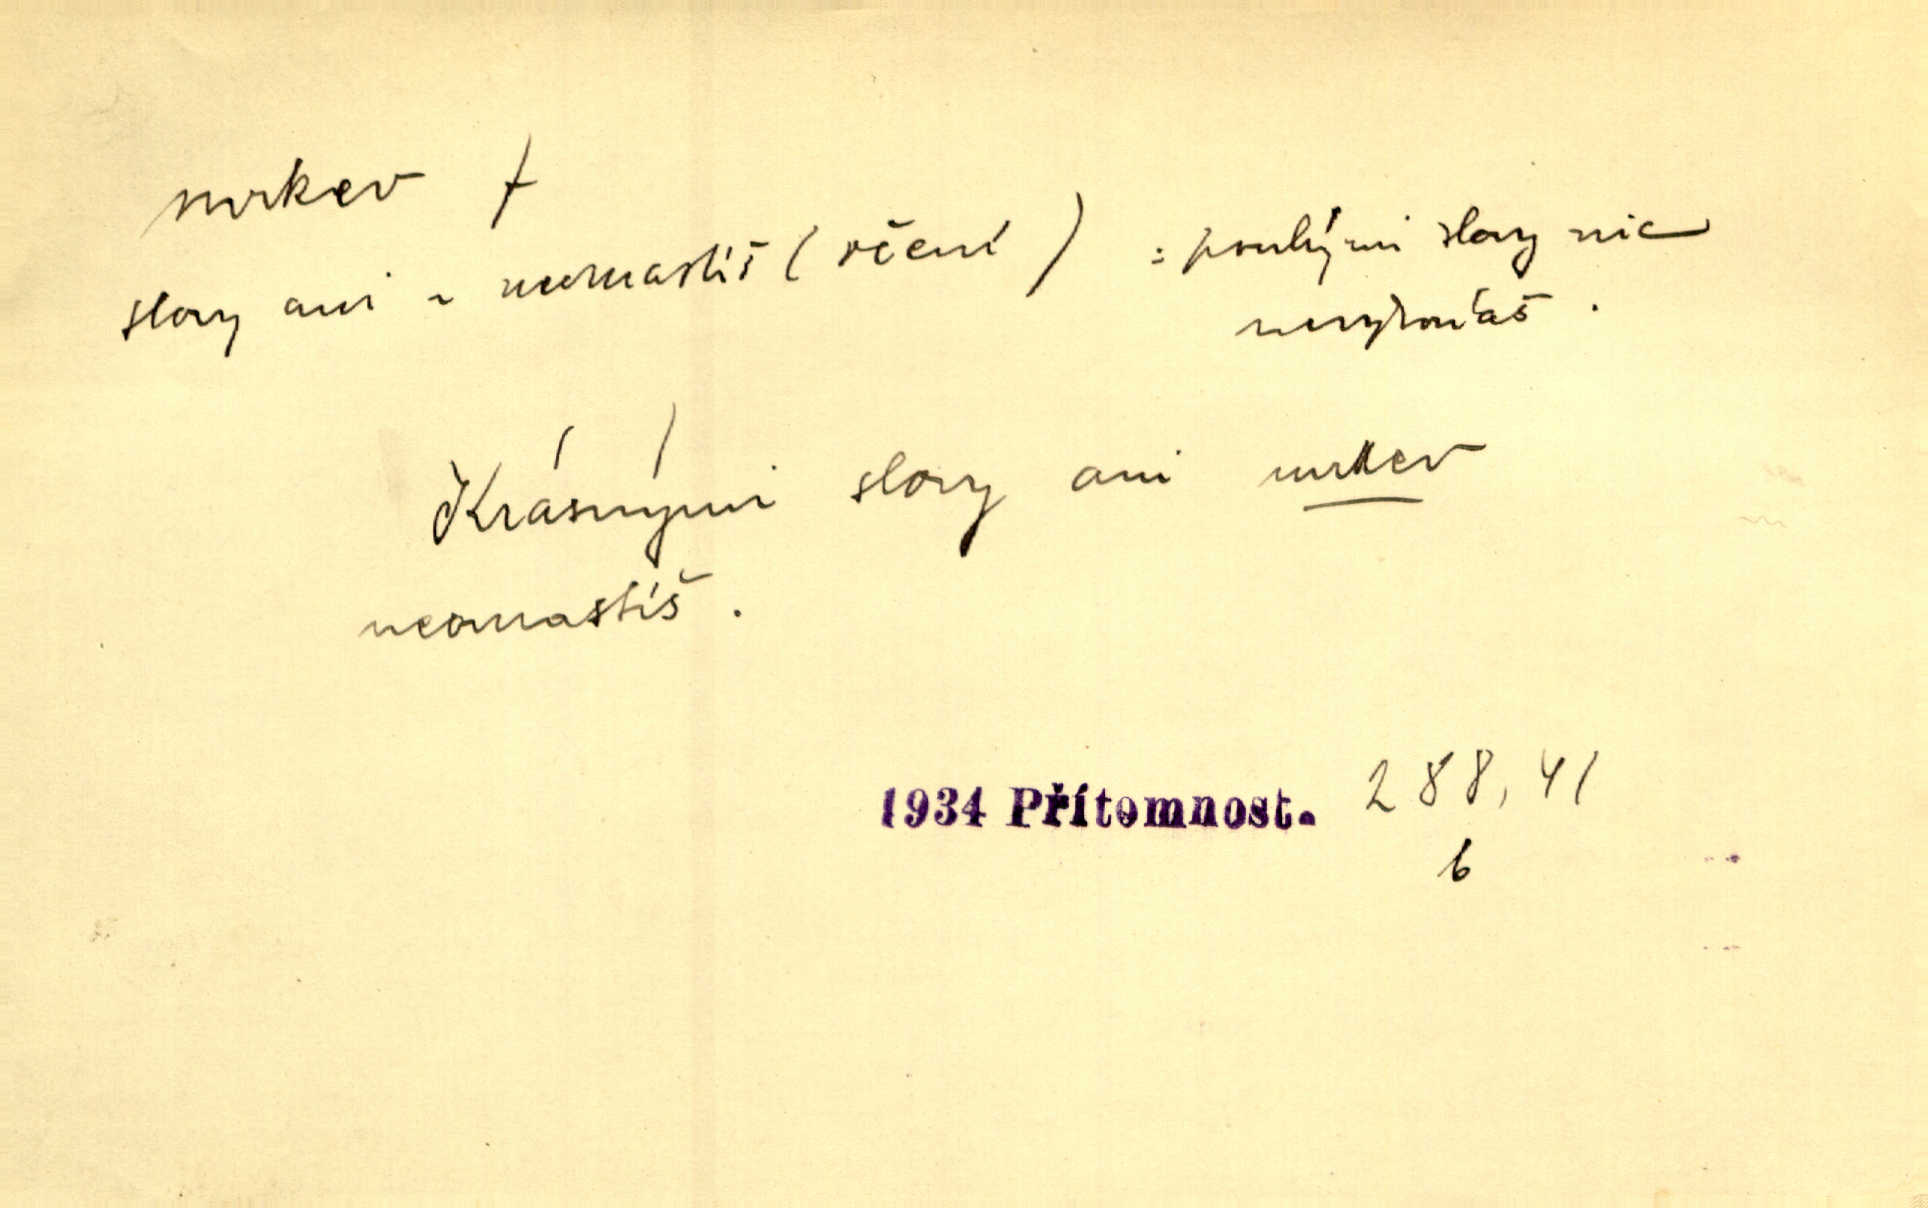 mrkev f
slovy ani ~ neomastíš (rčení) : pouhými slovy nic
nevykonáš .
Krásnými slovy ani mrkev
neomastíš .
1934 Přítomnost. 288, 41
b